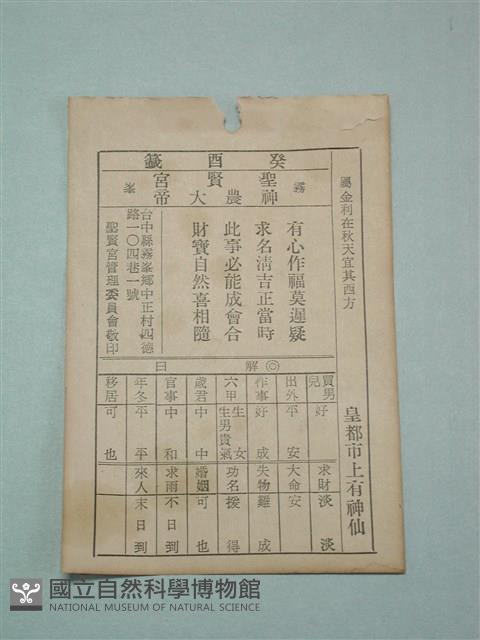 癸酉籤
霧
聖賢宮
神農大帝
峯
屬金利在秋天宜其西方
皇都市上有神仙
有心作福莫遲疑
求名清吉正當時
此事必能成會合
財寶自然喜相隨
台中縣霧峯鄉中正村四德
路一〇四巷一號
聖賢宮管理委員會敬印
◎解曰
買男兒 好
出外 平安
作事 好成
六甲 生女生男貴氣
歲君 中中
官事 中和
年冬 平平
移居 可也
求財 淡淡
大命 安
失物 難成
功名 援得
婚姻 可也
求雨 不日到
來人 末日到
國立自然科學博物館
NATIONAL MUSEUM OF NATURAL SCIENCE